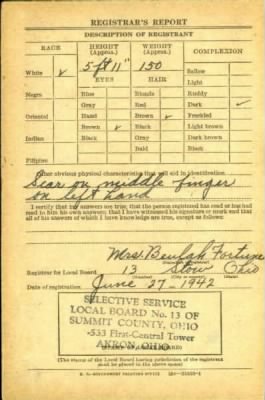 REGISTRAR'S REPORT
DESCRIPTION OF REGISTRANT
RACE HEIGHT (Approx.) WEIGHT (Approx.) COMPLEXION
5 ft 11" 150
White ✓ Sallow
EYES HAIR Light
Negro Blue Blonde Ruddy
Gray Red Dark ✓
Oriental Hazel Brown ✓ Freckled
Brown ✓ Black Light brown
Indian Black Gray Dark brown
Bald Black
Filipino
Other obvious physical characteristics that will aid in identification
Scar on middle finger
on left hand
I certify that my answers are true; that the person registered has read or has had
read to him his own answers; that I have witnessed his signature or mark and that
all of his answers of which I have knowledge are true, except as follows:
Mrs. Beulah Fortune
Registrar for Local Board 13 Stow Ohio
(Number) (City or county) (State)
Date of registration June 27-1942
SELECTIVE SERVICE
LOCAL BOARD No. 13 OF
SUMMIT COUNTY, OHIO
-533 First-Central Tower
AKRON, OHIO
(The stamp of the Local Board having jurisdiction of the registrant
shall be placed in the above space)
U. S. GOVERNMENT PRINTING OFFICE